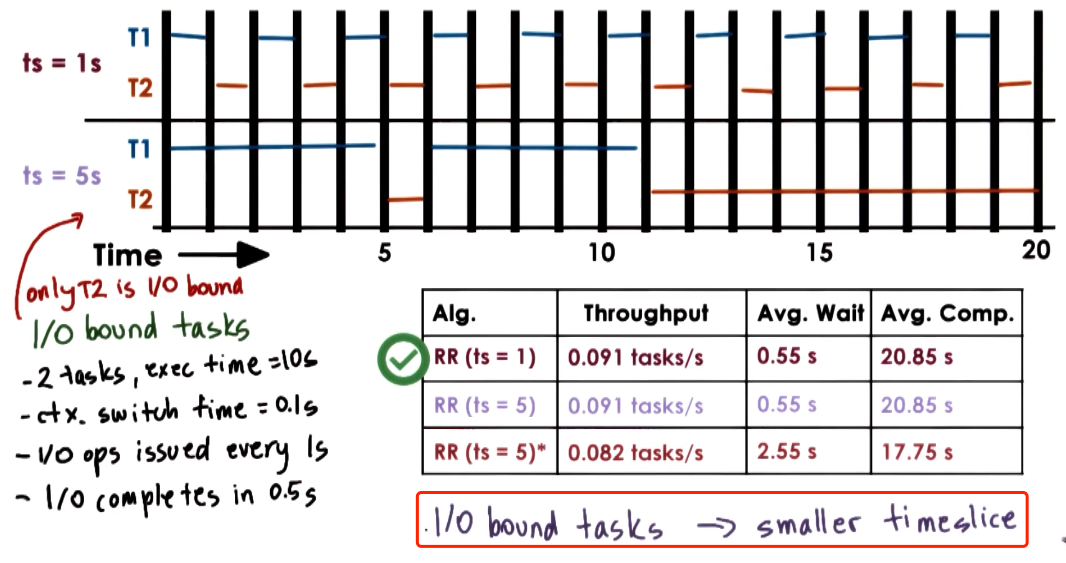 T1
ts = 1s
T2
T1
ts = 5s
T2
Time
5 10 15 20
only T2 is I/O bound
I/O bound tasks
- 2 tasks, exec time = 10s
- ctx. switch time = 0.1s
- I/O ops issued every 1s
- I/O completes in 0.5s
Alg. Throughput Avg. Wait Avg. Comp.
RR (ts = 1) 0.091 tasks/s 0.55 s 20.85 s
RR (ts = 5) 0.091 tasks/s 0.55 s 20.85 s
RR (ts = 5)* 0.082 tasks/s 2.55 s 17.75 s
. I/O bound tasks → smaller timeslice